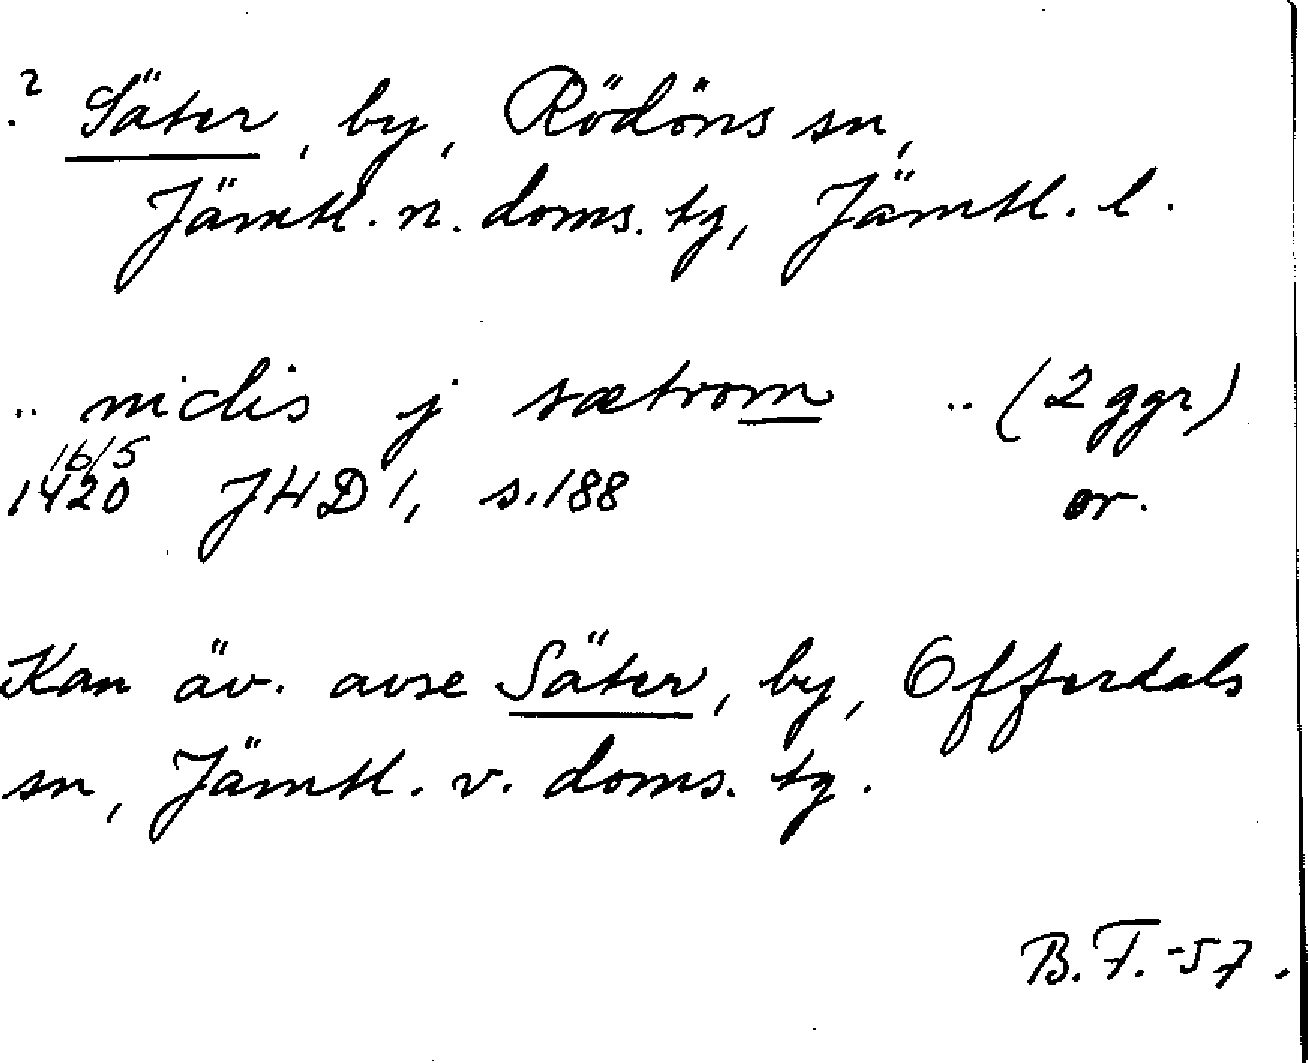 ? Säter, by, Rödöns sn,
Jämtl. n. doms. tg, Jämtl. l.
.. niclis j sætrom .. (2 ggr)
16/5
1420 JHD 1, s. 188 or.
Kan äv. avse Säter, by, Offerdals
sn, Jämtl. v. doms. tg.
B. F. -57.